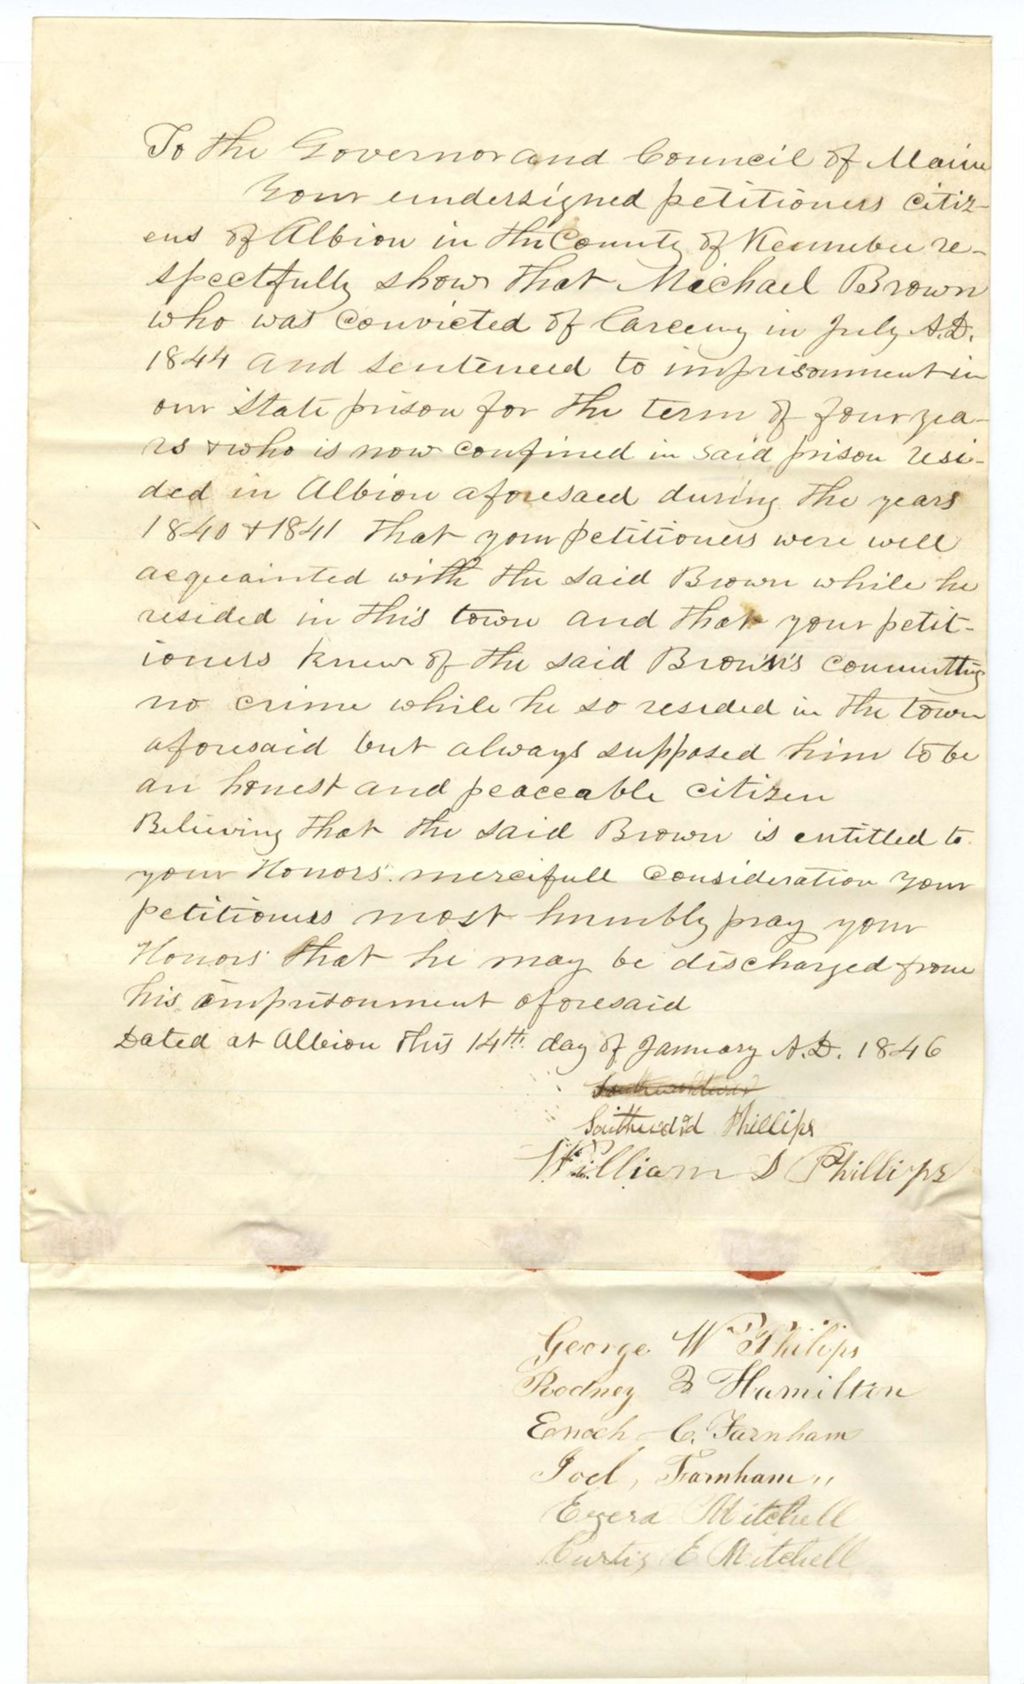 To the Governor and Council of Maine
Your undersigned petitioners citiz-
ens of Albion in the County of Kennebec re-
spectfully show that Michael Brown
who was convicted of Larceny in July A.D.
1844 and sentenced to imprisonment in
our State prison for the term of four yea-
rs & who is now confined in said prison resi-
ded in Albion aforesaed during the years
1840 & 1841 that your petitioners were well
acquainted with the said Brown while he
resided in this town and that your petit-
ioners knew of the said Brown's committing
no crime while he so resided in the town
aforesaid but always supposed him to be
an honest and peaceable citizen
Believing that the said Brown is entitled to
your Honors' mercifull consideration your
petitioners most humbly pray your
Honors' that he may be discharged from
his imprisonment aforesaid
Dated at Albion this 14th day of January A.D. 1846
Phillips
William D Phillips
George W Philips
Rodney Hamilton
Enoch C. Farnham
Joel, Farnham
Ezera Mitchell
Curtis E Mitchell